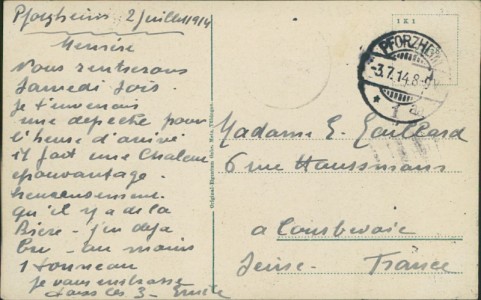 Pforzheim 2 juillet 1914
Nous rentrerons
Samedi soir.
Je t'enverrai
une depeche pour
l'heure d'arrivé
il fait une Chaleur
epouvantage.
heureusement
qu'il y a de la
Bière - j'en deja
bu - au moins
1 tonneau
je vous embrasse
tous les 3 - Emile
1 K 1
PFORZHEIM
-3.7.14.8-9V.
Madame E. Gaillard
6 rue Haussmann
a Courbevoie
Seine. France